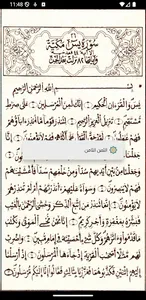 11:48
سورة يس مكية
بسم الله الرحمن الرحيم
يس والقرءان الحكيم إنك لمن المرسلين على صراط
مستقيم تنزيل العزيز الرحيم لتنذر قوما ما أنذر ءاباؤهم
فهم غافلون لقد حق القول على أكثرهم فهم لا يؤمنون إنا
النص الثامن
وجعلنا من بين أيديهم سدا ومن خلفهم سدا فأغشيناهم
فهم لا يبصرون وسواء عليهم ءأنذرتهم أم لم تنذرهم لا يؤمنون
إنما تنذر من اتبع الذكر وخشي الرحمن بالغيب فبشره
بمغفرة وأجر كريم إنا نحن نحي الموتى ونكتب
ما قدموا وءاثارهم وكل شيء أحصيناه في إمام مبين
واضرب لهم مثلا أصحاب القرية إذ جاءها المرسلون
إذ أرسلنا إليهم اثنين فكذبوهما فعززنا بثالث فقالوا إنا إليكم مرسلون